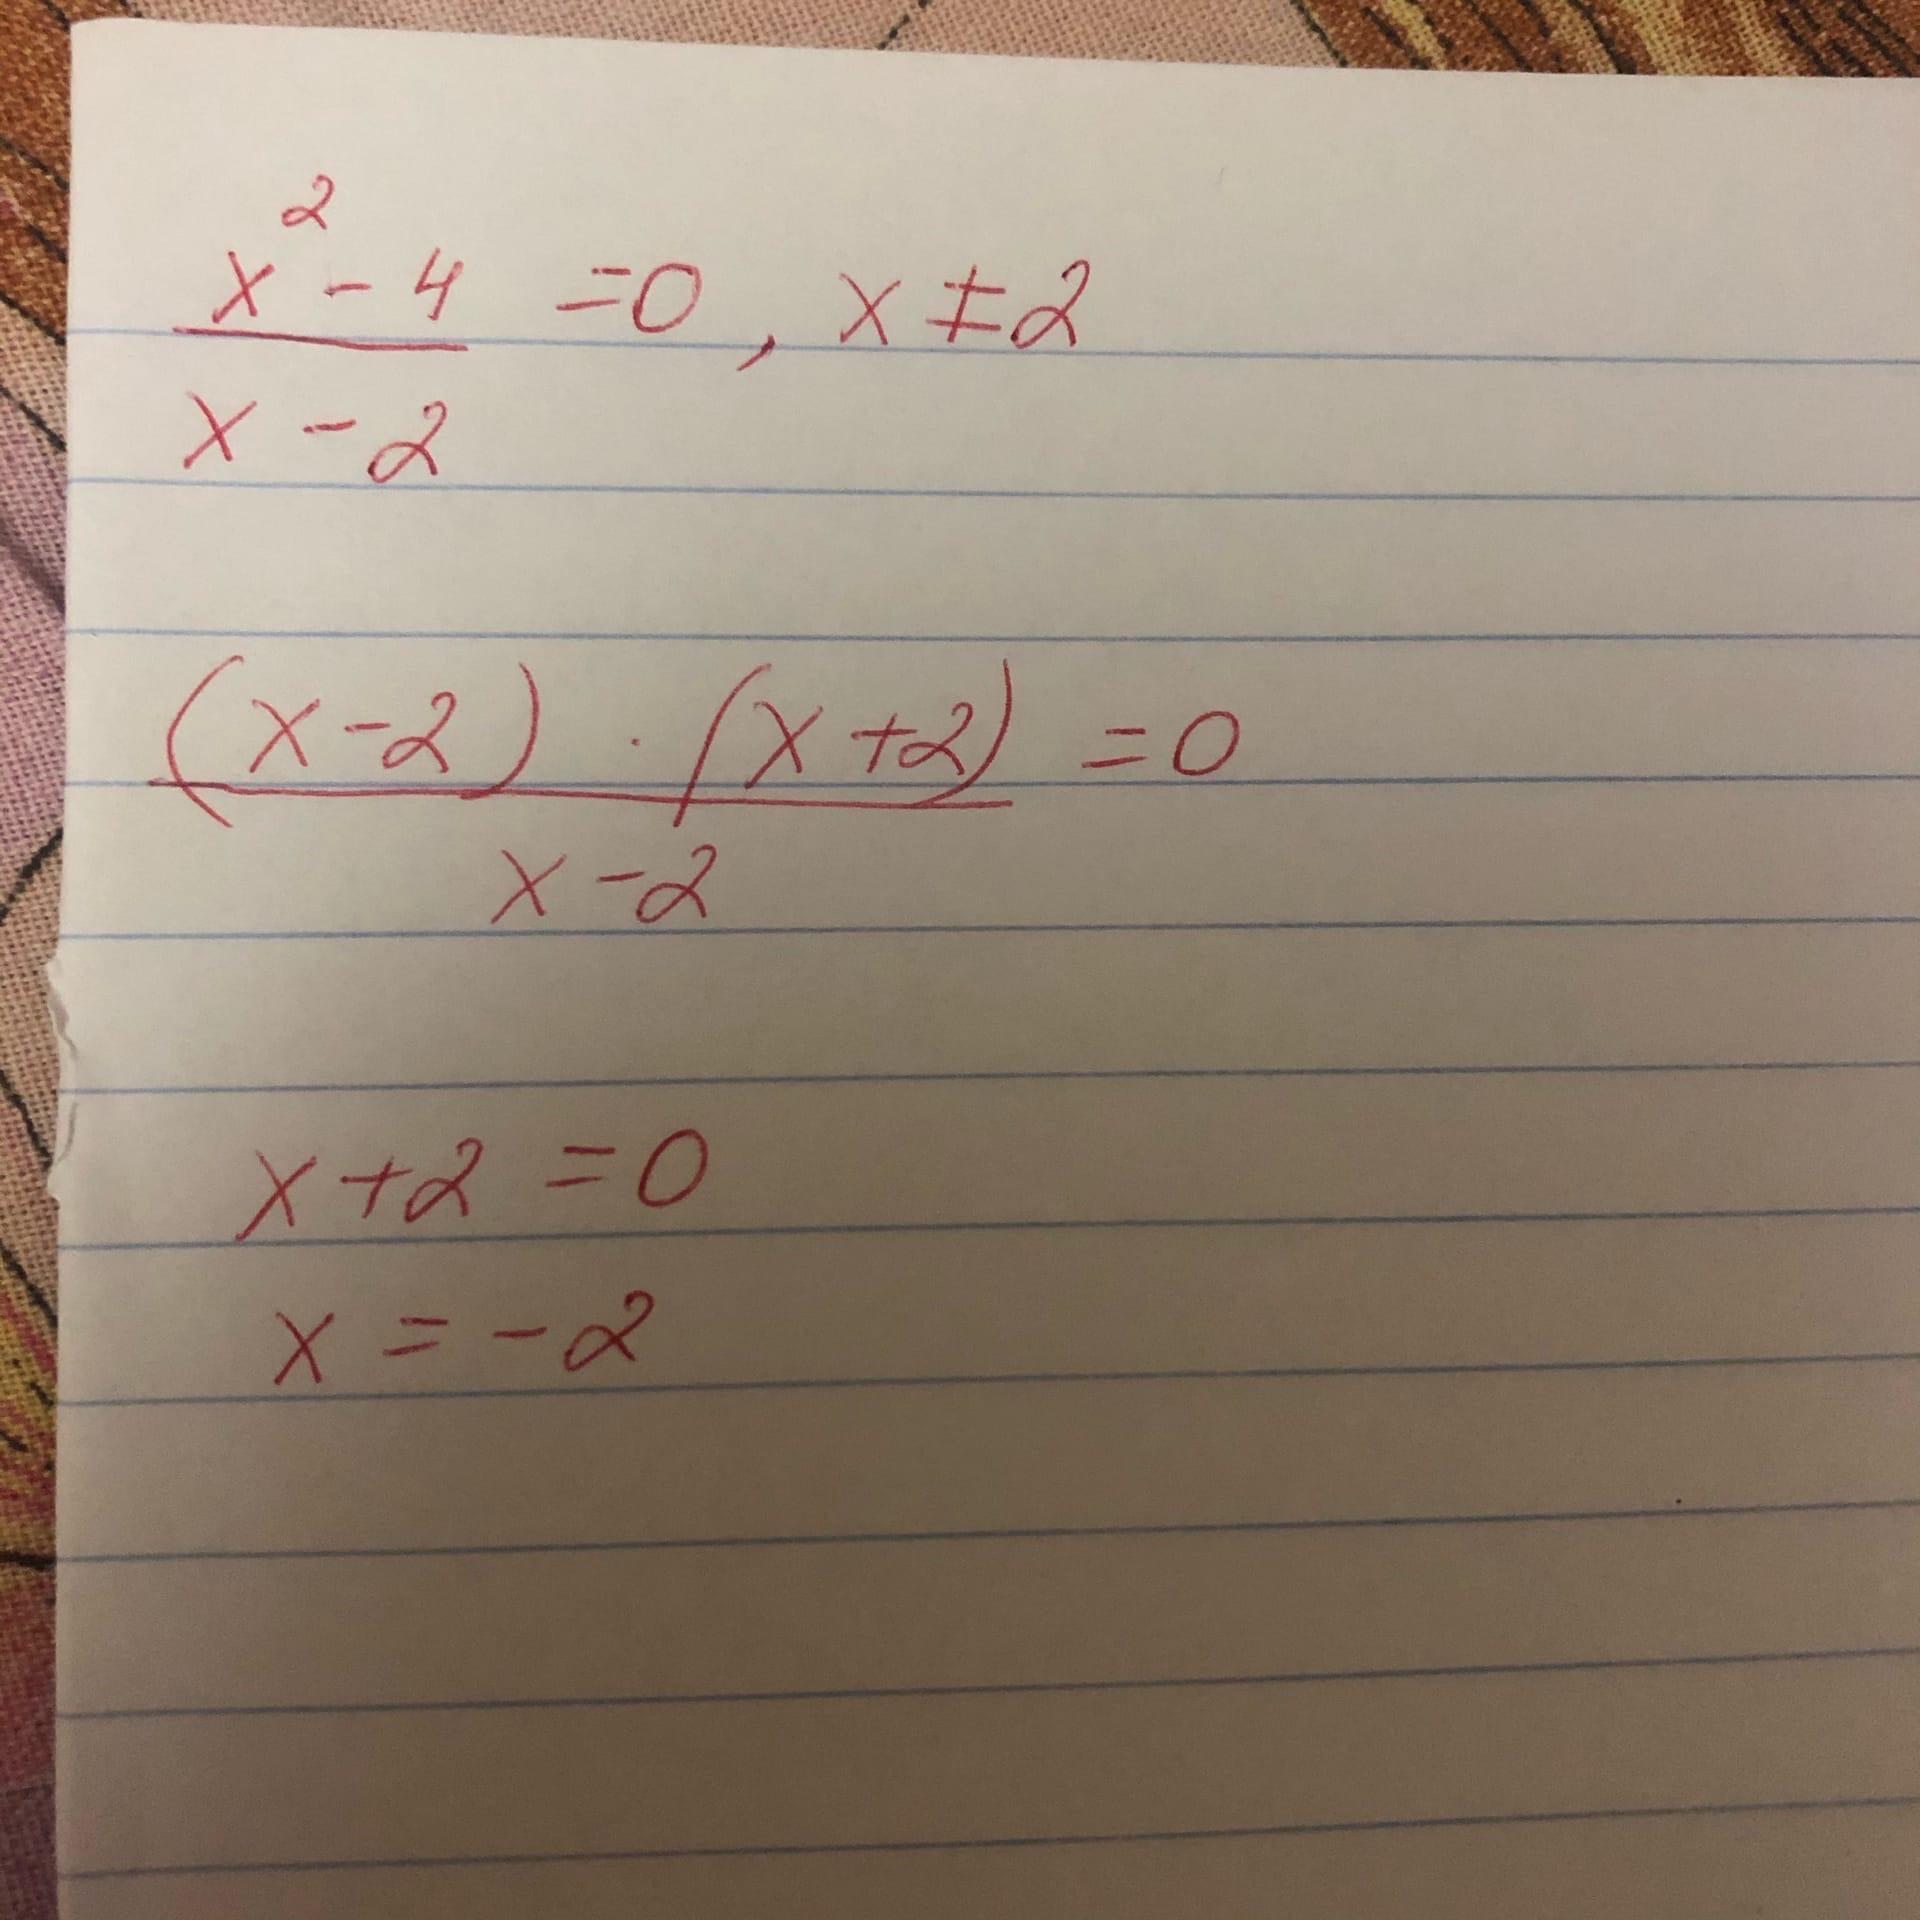 x² - 4 / x - 2 = 0, x ≠ 2
(x-2) · (x+2) / x-2 = 0
x+2 = 0
x = -2